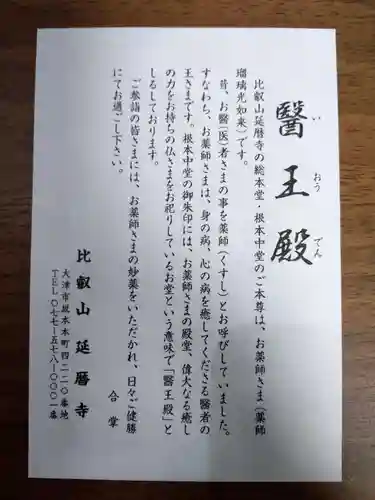 醫王殿
い おう でん
比叡山延暦寺の総本堂・根本中堂のご本尊は、お薬師さま(薬師
瑠璃光如来)です。
昔、お醫(医)者さまの事を薬師(くすし)とお呼びしていました。
すなわち、お薬師さまは、身の病、心の病を癒してくださる醫者の
王さまです。根本中堂の御朱印には、お薬師さまの殿堂、偉大なる癒し
の力をお持ちの仏さまをお祀りしているお堂という意味で「醫王殿」と
しるしております。
ご参詣の皆さまには、お薬師さまの妙薬をいただかれ、日々ご健勝
にてお過ごし下さい。
合掌
比叡山 延暦寺
大津市坂本本町四二二〇番地
TEL〇七七-五七八-〇〇〇一番